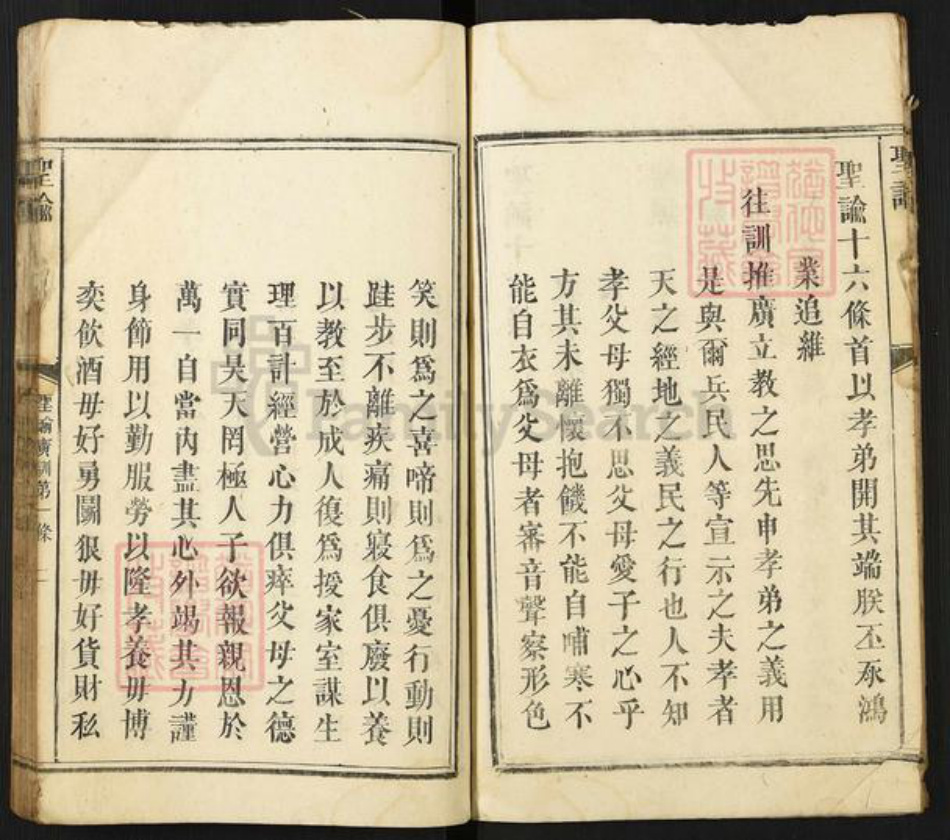 聖諭十六條首以孝弟開其端朕丕承鴻
業追維
往訓推廣立教之思先申孝弟之義用
是與爾兵民人等宣示之夫孝者
天之經地之義民之行也人不知
孝父母獨不思父母愛子之心乎
方其未離懷抱饑不能自哺寒不
能自衣為父母者審音聲察形色
笑則為之喜啼則為之憂行動則
跬步不離疾痛則寢食俱廢以養
以教至於成人復為授家室謀生
理百計經營心力俱瘁父母之德
實同昊天罔極人子欲報親恩於
萬一自當內盡其心外竭其力謹
身節用以勤服勞以隆孝養毋博
奕飲酒毋好勇鬬狠毋好貨財私
聖諭
聖諭廣訓第一條
FamilySearch